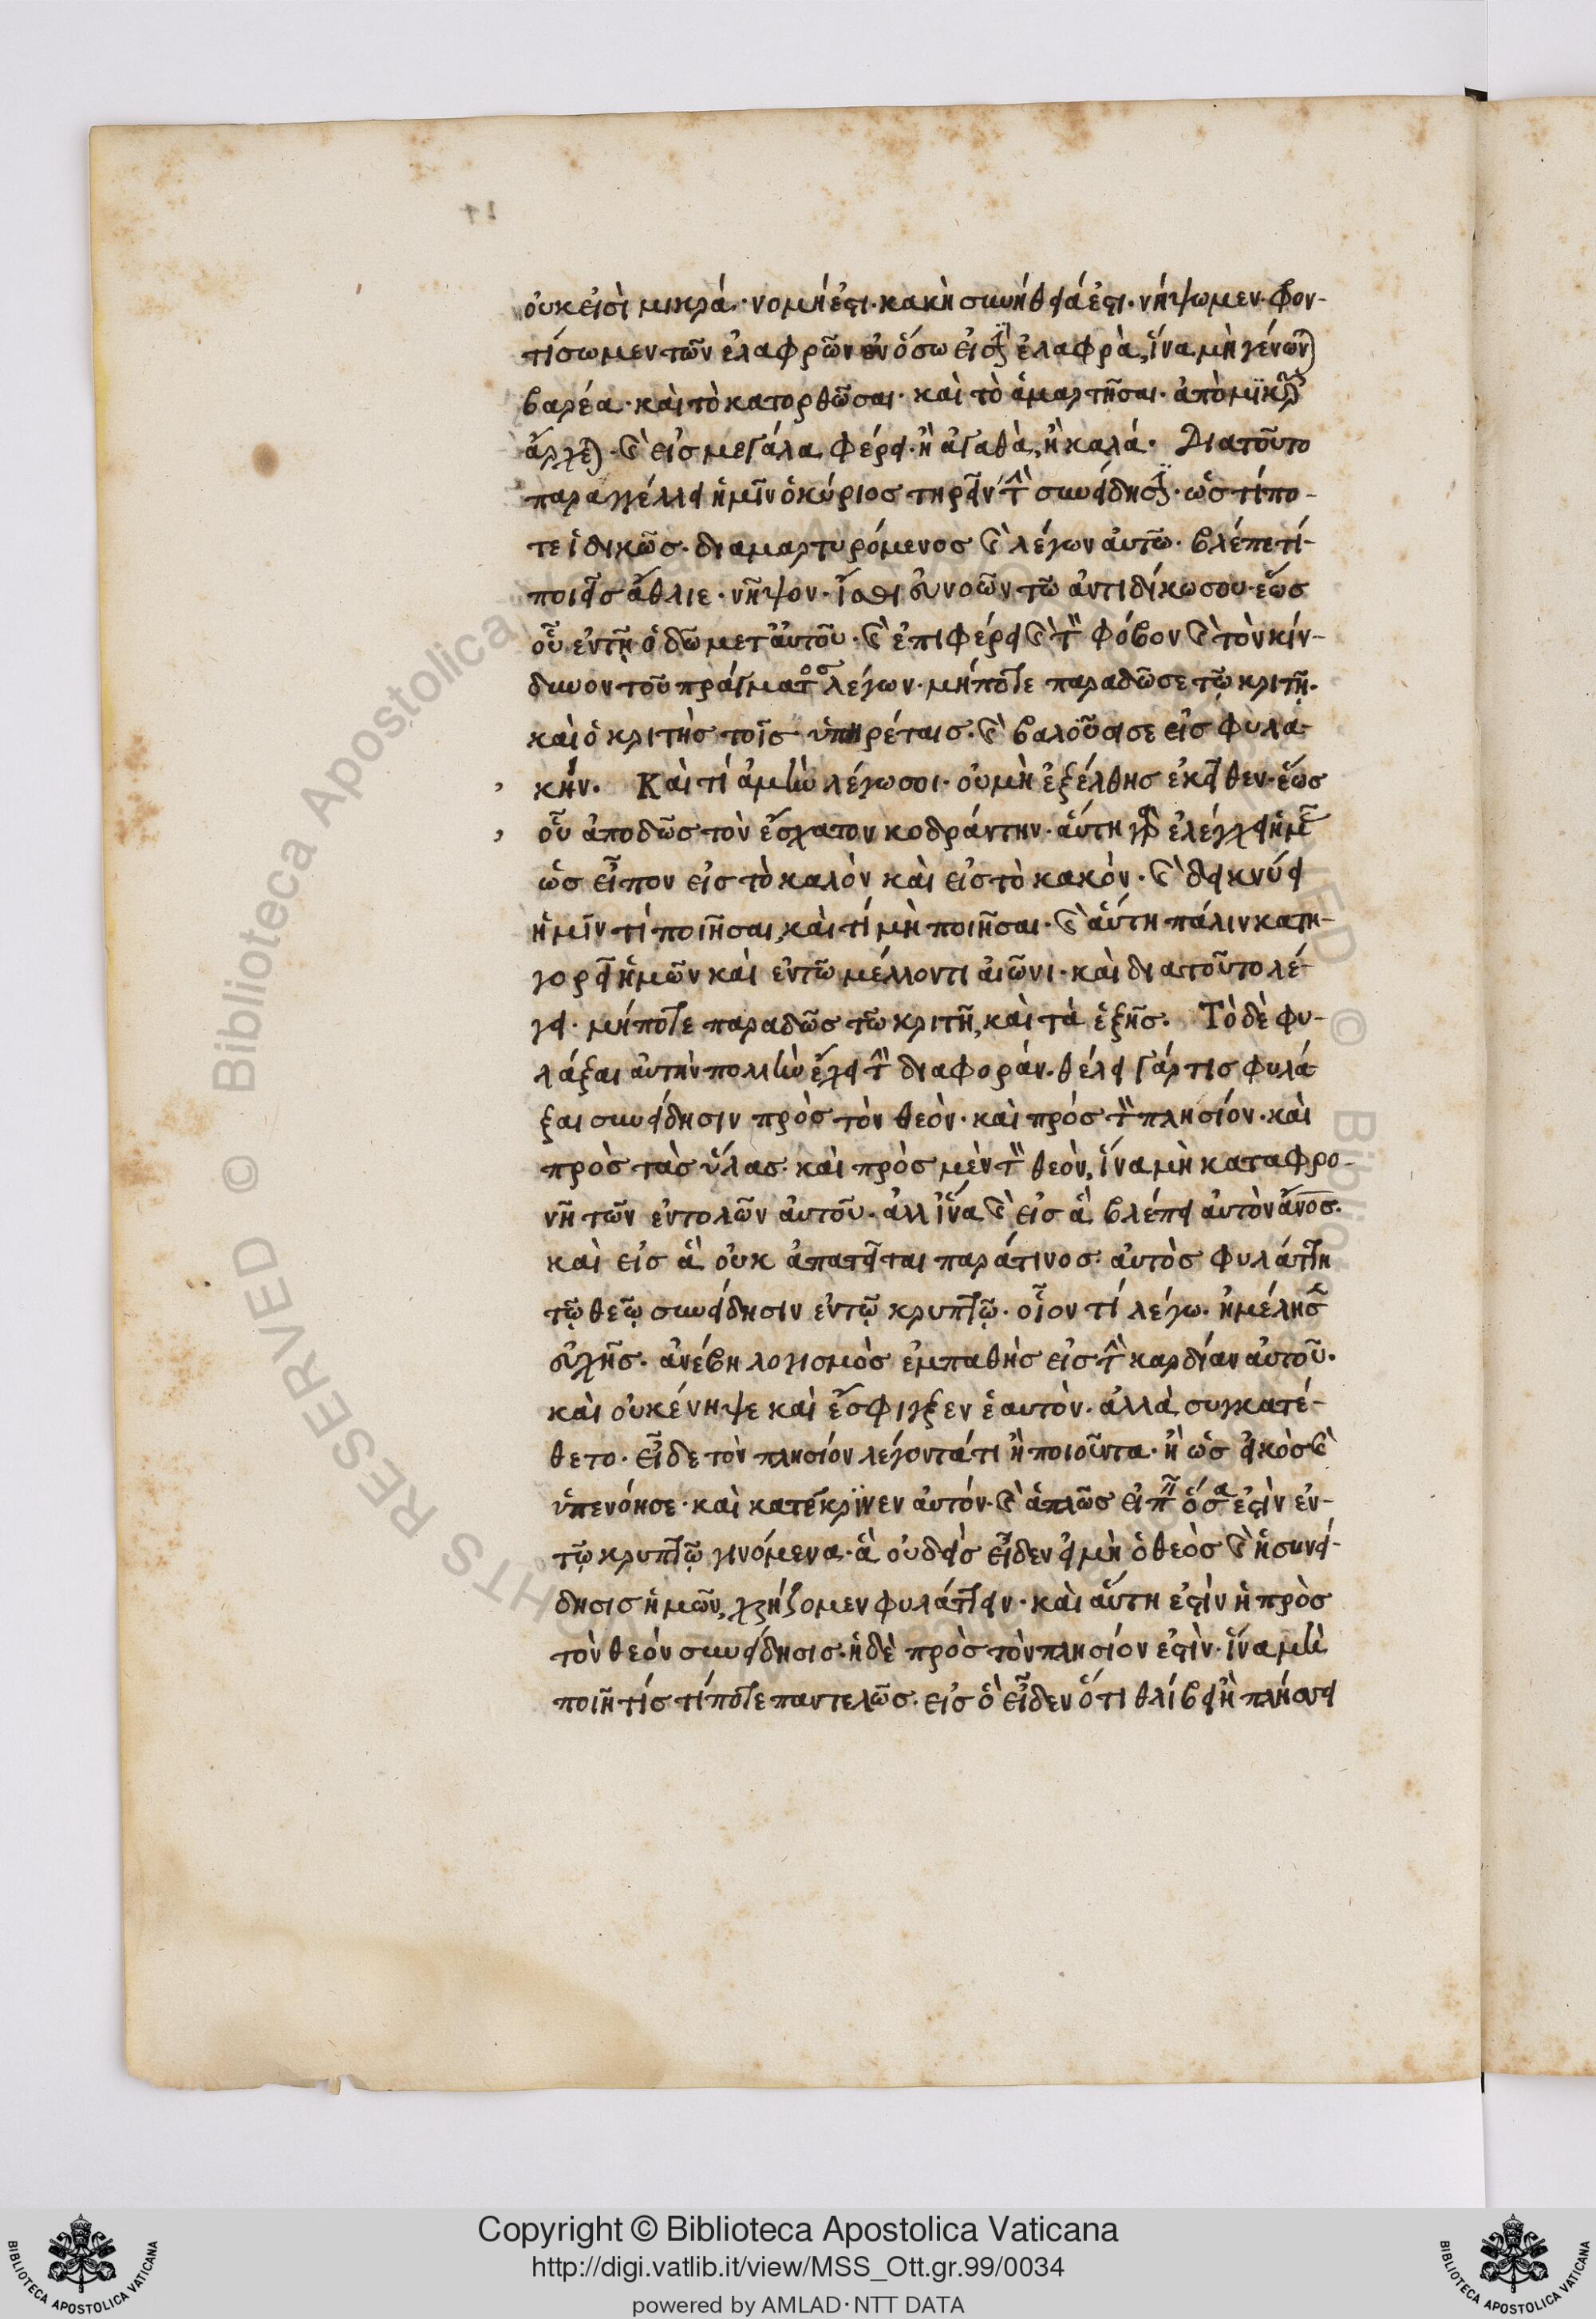 οὐκ εἰσὶ μικρά· νομή ἐστι· κακὴ συνήθειά ἐστι· νήψωμεν· φρον-
τίσωμεν τῶν ἐλαφρῶν ἐν ὅσω εἰσὶν ἐλαφρὰ, ἵνα μὴ γένωνται
βαρέα· καὶ τὸ κατορθῶσαι· καὶ τὸ ἁμαρτῆσαι· ἀπὸ μικροῦ
ἄρχεται· καὶ εἰς μεγάλα φέρει· ἢ ἀγαθὰ, ἢ κακά· Διατοῦτο
παραγγέλλει ἡμῖν ὁ κύριος τηρεῖν τὴν συνείδησιν· ὡς τί πο-
τε ἰδικῶς· διαμαρτυρόμενος καὶ λέγων αὐτῶ· βλέπε τί
ποιεῖς ἄθλιε· νῆψον· ἴσθι εὐνοῶν τῶ ἀντιδίκω σου· ἕως
οὗ ἐν τῇ ὁδῶ μετ αὐτοῦ· καὶ ἐπιφέρει καὶ τὸν φόβον καὶ τὸν κίν-
δυνον τοῦ πράγματος λέγων· μήποτε παραδῶ σε τῷ κριτῇ·
καὶ ὁ κριτὴς τοῖς ὑπηρέταις· καὶ βαλοῦσι σε εἰς φυλα-
κήν· Καὶ τί ἀμὴν λέγω σοι· οὐ μὴ ἐξέλθης ἐκεῖθεν· ἕως
οὗ ἀποδῶς τὸν ἔσχατον κοδράντην· αὕτη γὰρ ἐλέγχει ἡμᾶς
ὡς εἶπον εἰς τὸ καλὸν καὶ εἰς τὸ κακὸν· καὶ δεικνύει
ἡμῖν τί ποιῆσαι, καὶ τί μὴ ποιῆσαι· καὶ αὕτη πάλιν κατη-
γορεῖ ἡμῶν καὶ ἐν τῶ μέλλοντι αἰῶνι· καὶ διατοῦτο λέ-
γει· μήποτε παραδῶς τῶ κριτῆ, καὶ τὰ ἑξῆς. Τὸ δὲ φυ-
λάξαι αὐτὴν πολλὴν ἔχει τὴν διαφοράν· θέλει γάρ τις φυλά-
ξαι συνείδησιν πρὸς τὸν θεὸν· καὶ πρὸς τὸν πλησίον· καὶ
πρὸς τὰς ὕλας· καὶ πρὸς μὲν τὸν θεὸν, ἵνα μὴ καταφρο-
νῆ τῶν ἐντολῶν αὐτοῦ· ἀλλ ἵνα καὶ εἰς ἃ βλέπει αὐτὸν ἄνος·
καὶ εἰς ἃ οὐκ ἀπατεῖται παρά τινος· αὐτὸς φυλάττη
τῷ θεῷ συνείδησιν ἐν τῷ κρυπτῷ· οἷον τί λέγω· ἠμέλησε
εὐχῆς· ἀνέβη λογισμὸς ἐμπαθὴς εἰς τὴν καρδίαν αὐτοῦ·
καὶ οὐκ ένηψε καὶ ἔσφιγξεν ἑαυτὸν· ἀλλὰ συγκατέ-
θετο· εἶδε τὸν πλησίον λέγοντά τι ἢ ποιοῦντα· ἢ ὡς εἰκὸς καὶ
ὑπενόησε· καὶ κατέκρινεν αὐτόν· καὶ ἁπλῶς εἰπεῖν ὅσα ἐστὶν ἐν
τῷ κρυπτῷ γινόμενα· ἃ οὐδεὶς εἶδεν εἰ μὴ ὁ θεὸς καὶ ἡ συνεί-
δησις ἡμῶν, χρήζομεν φυλάττειν· καὶ αὕτη ἐστὶν ἡ πρὸς
τὸν θεὸν συνείδησις· ἡ δὲ πρὸς τὸν πλησίον ἐστὶν· ἵνα μὴ
ποιῆ τίς τίποτε παντελῶς· εἰς ὃ εἶδεν ὅτι θλίβει ἢ πλήσσει